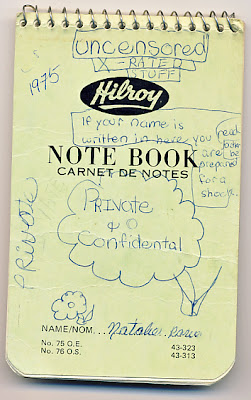 Uncensored
X-RATED
STUFF!
1975
Hilroy
If your name is
written in here you read
are
be
prepared
for a
shock.
NOTE BOOK
CARNET DE NOTES
PRIVATE
PRIVATE
&
Confidental
NAME/NOM... Natalie
No. 75 O.E. 43-323
No. 76 O.S. 43-313